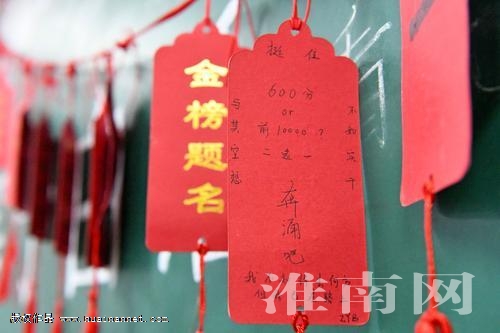 金榜题名
挺住
600分
or
前10000?
二选一
与其空想
不如实干
奔涌吧
淮南网
版权作品 http://www.huainannet.com 请勿转载